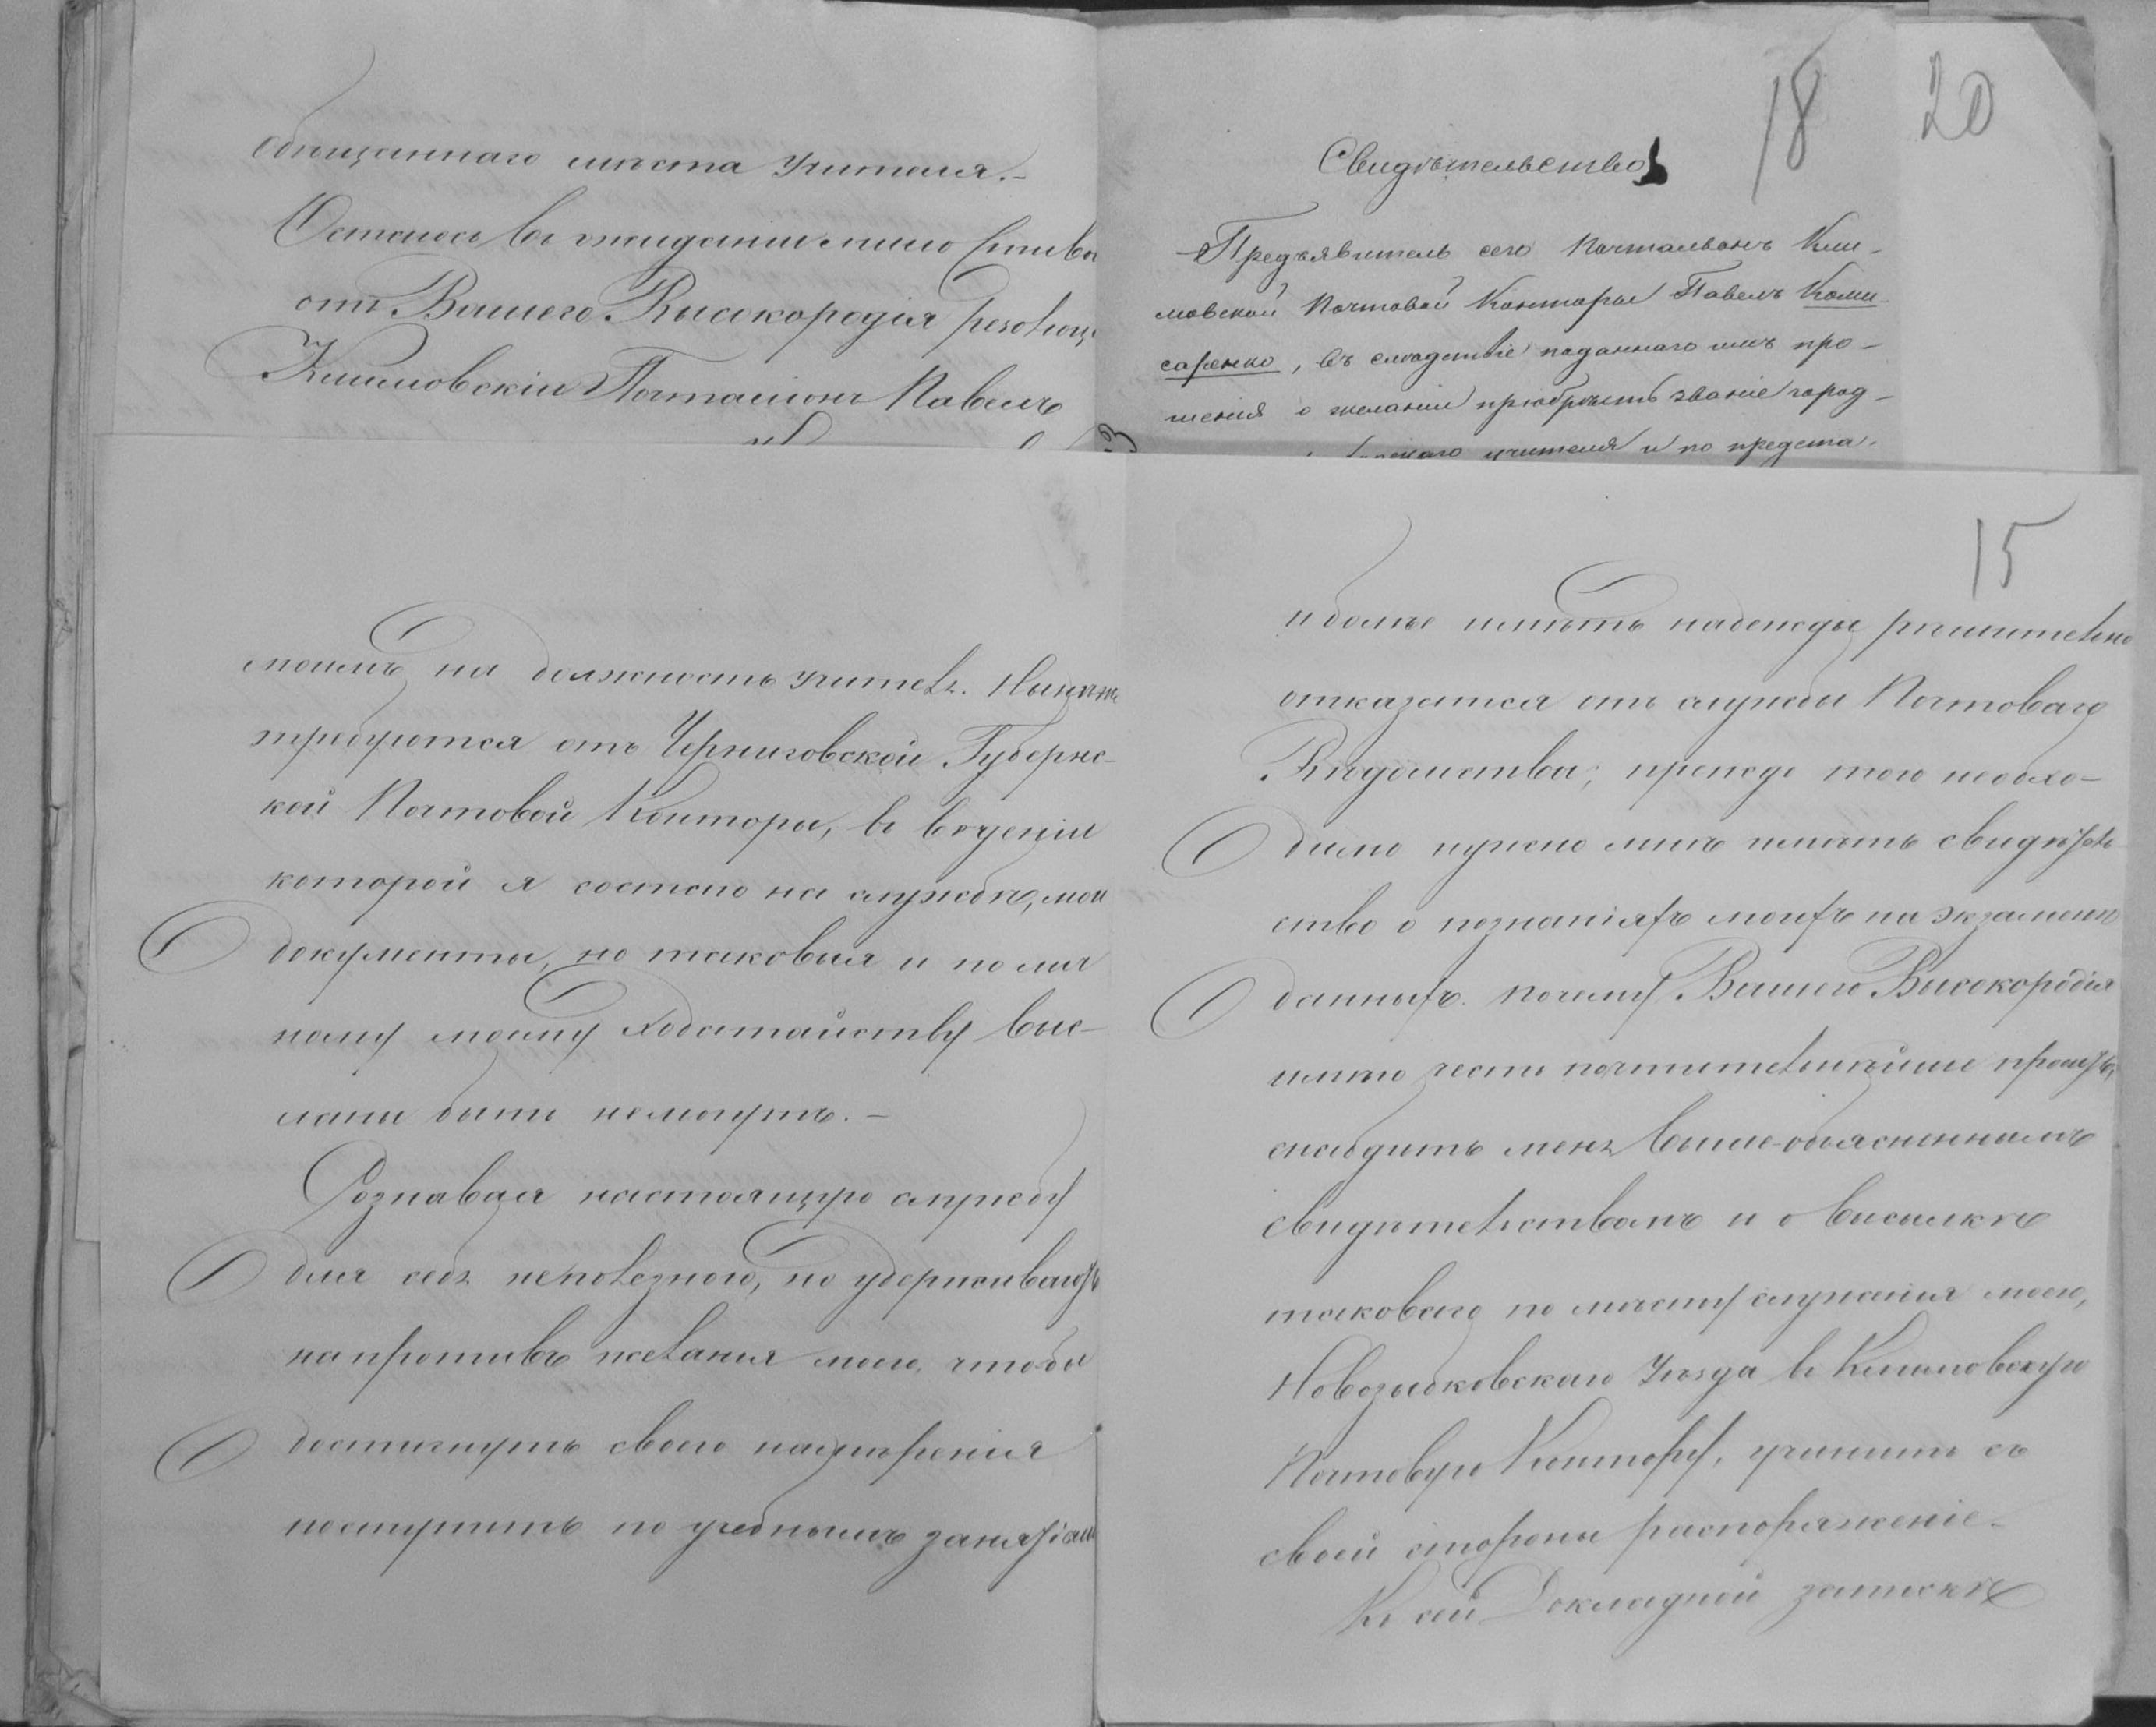 обѣщаннаго мѣста Учителя.-
Остаюсь въ ожиданіи милости
отъ Вашего Высокородія
Климовскій Почталіонъ Павелъ
18
20
Свидѣтельство
Предъявитель сего Почтальонъ Кли-
мовской Почтовой Конторы Павелъ Коми-
саренко, въ слѣдствіе поданнаго имъ про-
шенія о желаніи пріобрѣсть званіе город-
учителя и по предста-
моимъ на должность учителя. Нынѣ
требуются отъ Черниговской Губернс-
кой Почтовой Конторы, въ веденіи
которой я состою на службѣ, мои
документы, но таковыя и по лич
ному моему ходатайству выс-
ланы быть немогутъ.-
Сознавая настоящую службу
для себя неполезною, но удерживаюсь
напротивъ желанія моего, чтобы
достигнуть своего намѣренія
поступить по учебнымъ занятіямъ
15
и болѣе имѣть надежды рѣшительно
отказатся отъ службы Почтоваго
Вѣдомства; прежде того необхо-
димо нужно мнѣ имѣть свидѣтель
ство о познаніяхъ моихъ на экзаменѣ
данныхъ. почему Вашего Высокородія
имѣю честь почтительнѣйше просить,
снабдить меня выше-объясненнымъ
свидѣтельствомъ и о высылкѣ
таковаго по мѣсту служенія моего,
Новозыбковскаго Уѣзда въ Климовскую
Почтовую Контору, учинить съ
своей стороны распоряженіе.
Къ сей Докладной запискѣ